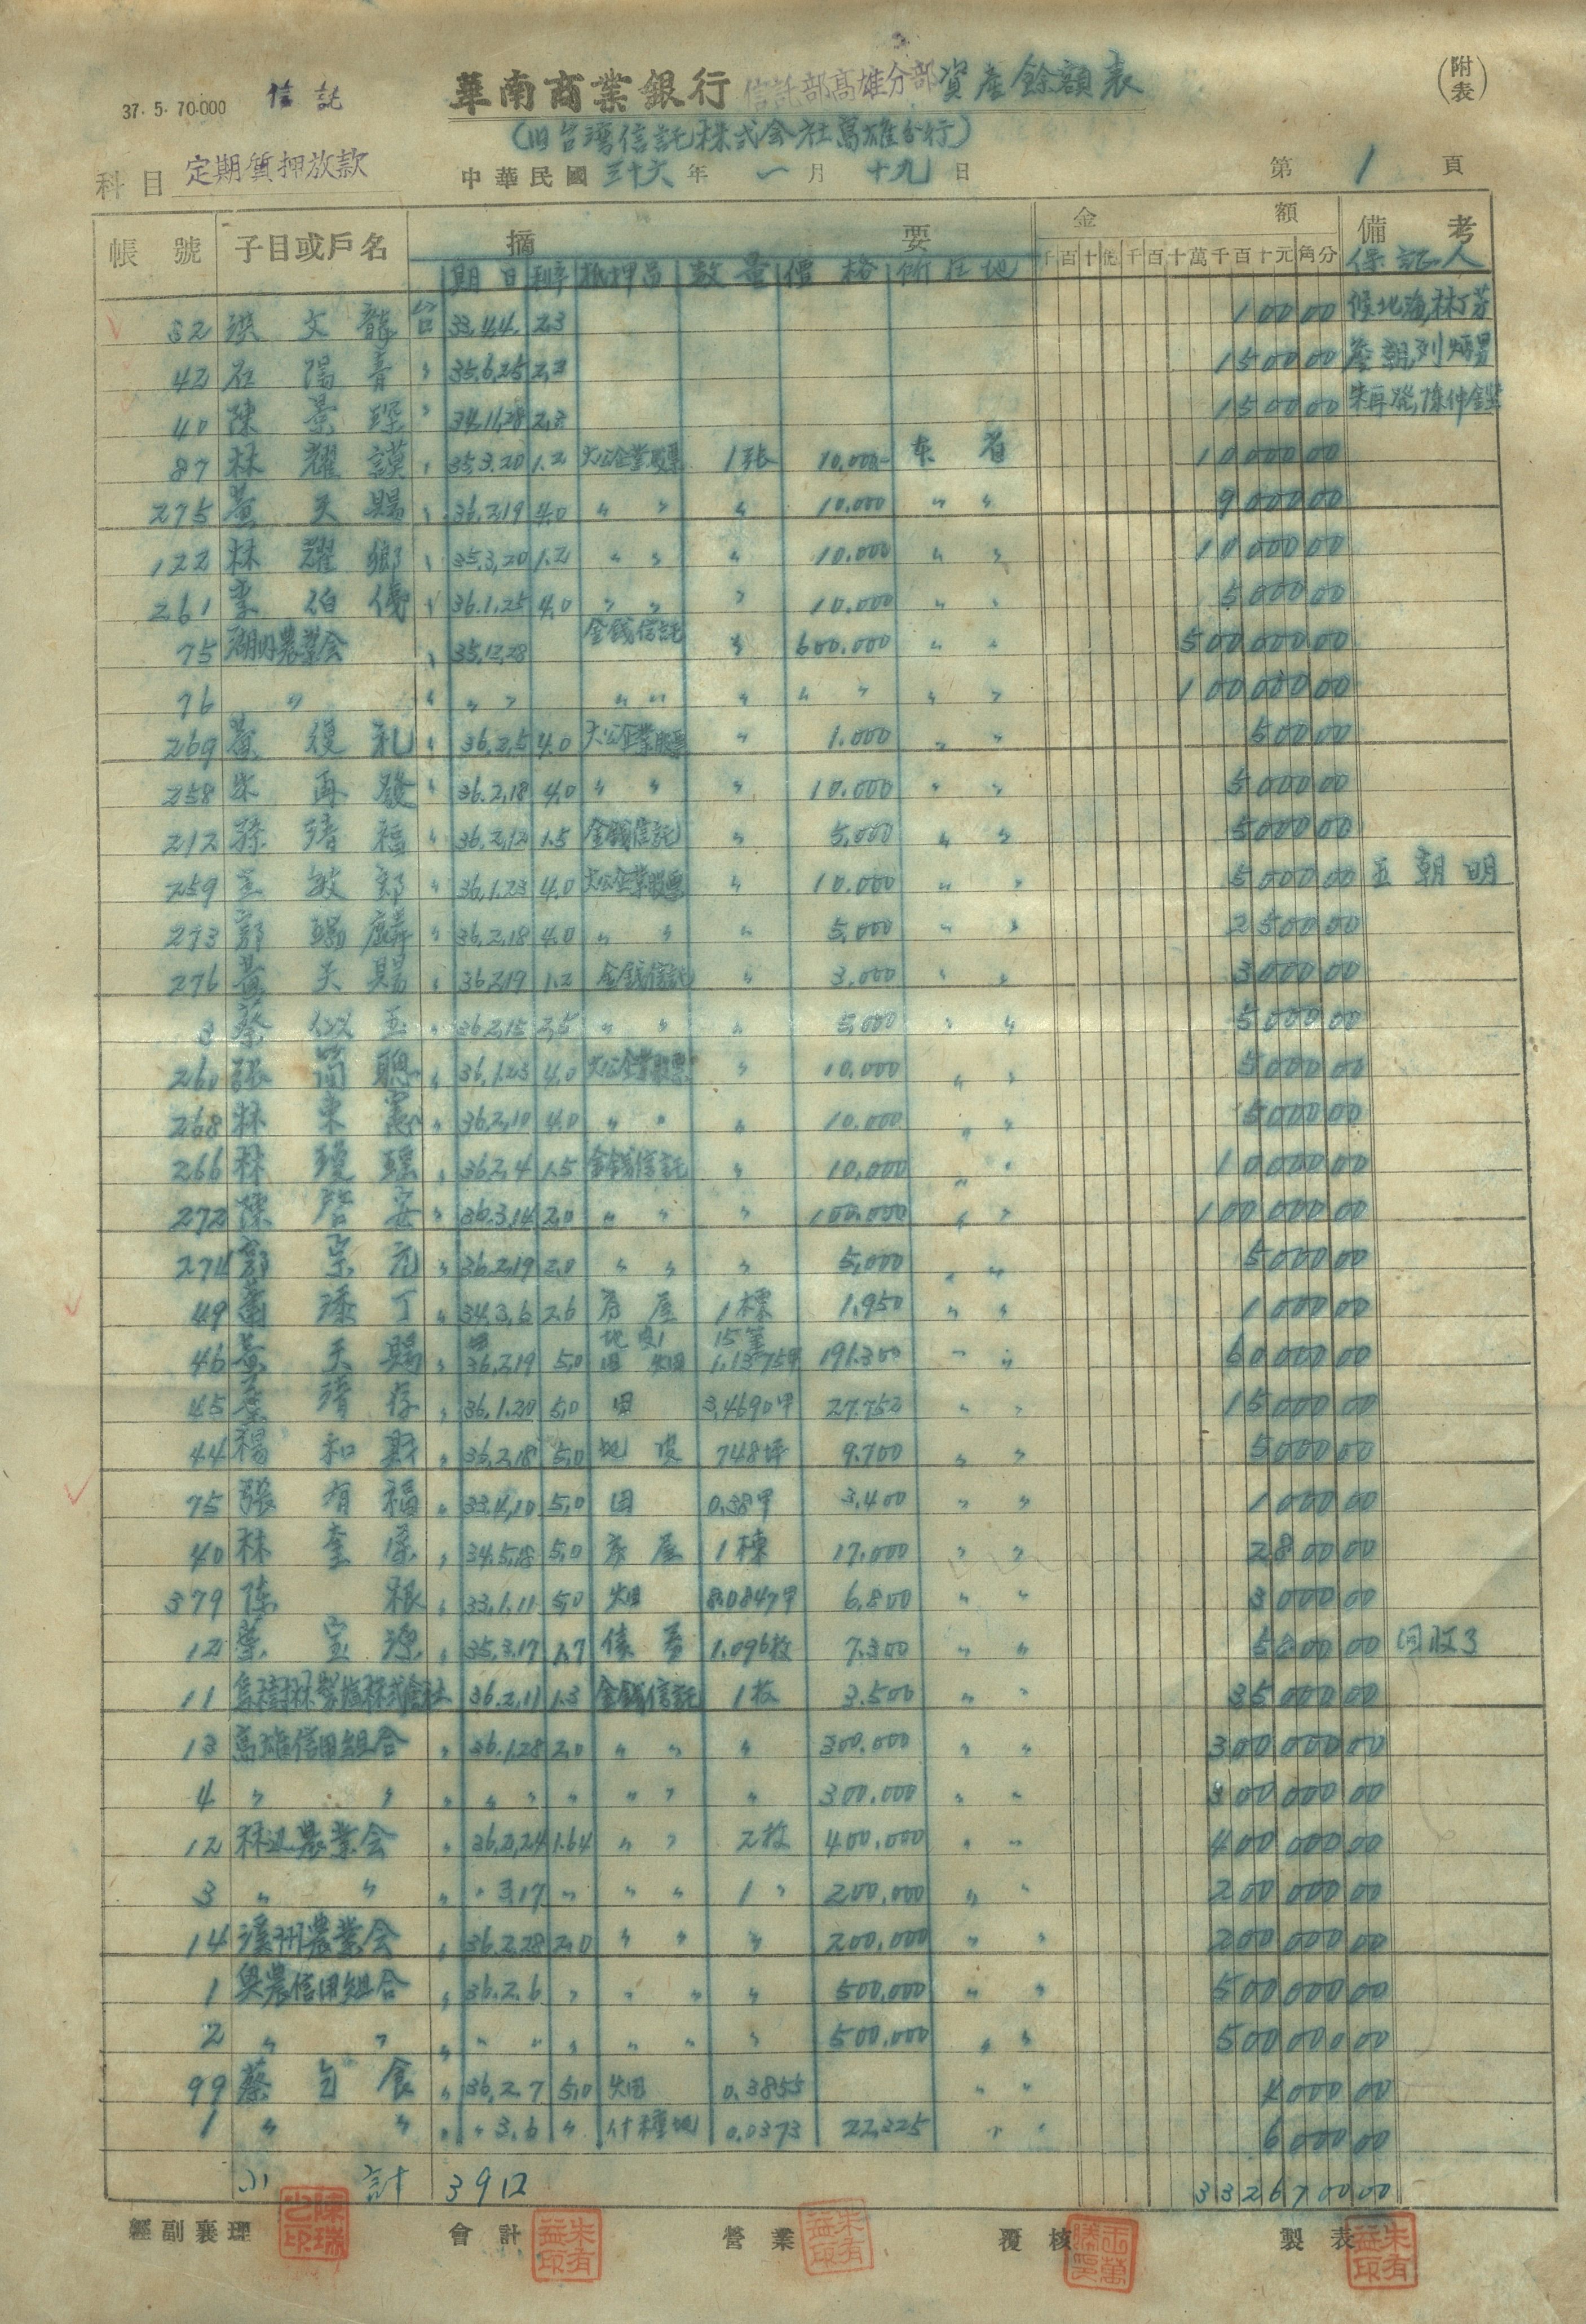 37. 5. 70.000 信託 華南商業銀行 信託部高雄分部 資產餘額表 (附表)
(旧台湾信託株式会社高雄分行)
科目 定期質押放款 中華民國 三十六 年 一 月 十九 日 第 1 頁
帳號 子目或戶名 摘要 金額 備考
期日 利率 抵押品 数量 價格 所在地 千百十億千百十萬千百十元角分 保証人
32 洪文龍 台 33.4.4. 2.3 100 00
42 石陽音 〃 35.6.25 2.3 1500 00
40 陳景琛 〃 34.11.28 2.3 1500 00 朱再發,陳仲鑫
87 林耀謨 〃 35.3.20 1.2 大公企業股票 1張 10,000- 本省 10000 00
275 黃天賜 〃 36.2.19 4.0 〃 〃 〃 10.000 〃 〃 9000 00
122 林耀鄉 〃 35.3.20 1.2 〃 〃 〃 10.000 〃 〃 10000 00
261 李伯儀 〃 36.1.25 4.0 〃 〃 〃 10.000 〃 〃 5000 00
75 湖内農業会 〃 35.12.28 金錢信託 〃 600.000 〃 〃 500000 00
76 〃 〃 〃 〃 〃 〃 〃 〃 〃 〃 〃 100000 00
269 復礼 〃 36.2.5 4.0 大公企業股票 〃 1.000 〃 〃 500 00
258 朱再發 〃 36.2.18 4.0 〃 〃 〃 10.000 〃 〃 5000 00
212 孫靖福 〃 36.2.12 1.5 金錢信託 〃 5,000 〃 〃 5000 00
259 王敏郎 〃 36.1.23 4.0 大公企業股票 〃 10.000 〃 〃 5000 00 王朝明
273 郭瑞麟 〃 36.2.18 4.0 〃 〃 〃 5,000 〃 〃 2500 00
276 黃天賜 〃 36.2.19 1.2 金錢信託 〃 3.000 〃 〃 3000 00
3 蔡似玉 〃 36.2.15 2.5 〃 〃 〃 5,000 〃 〃 5000 00
260 張簡聰 〃 36.1.23 4.0 大公企業股票 〃 10.000 〃 〃 5000 00
268 林東憲 〃 36.2.10 4.0 〃 〃 〃 10.000 〃 〃 5000 00
266 林瓊瑶 〃 36.2.4 1.5 金錢信託 〃 10,000 〃 〃 10000 00
272 陳啓安 〃 36.3.14 2.0 〃 〃 〃 100.000 〃 〃 100000 00
274 郭宗元 〃 36.2.19 2.0 〃 〃 〃 5,000 〃 〃 5000 00
49 添丁 〃 34.3.6 2.6 房屋 1棟 1.950 〃 〃 1000 00
地皮 15筆
46 黃天賜 〃 36.2.19 5.0 田 畑 1.1375甲 191.300 〃 〃 60000 00
45 靖存 〃 36.1.20 5.0 田 3.4690甲 27.752 〃 〃 15000 00
44 楊和 〃 36.2.18 5.0 地皮 748坪 9.700 〃 〃 5000 00
75 張有福 〃 33.4.10 5.0 田 0.38甲 3.400 〃 〃 1000 00
40 林奎 〃 34.5.18 5.0 房屋 1棟 17.000 〃 〃 2800 00
379 陳根 〃 33.1.11 5.0 畑 8.0847甲 6.800 〃 〃 3000 00
12 蔡宝源 〃 35.3.17 1.7 債券 1.096枚 7.300 〃 〃 5800 00 回收了
11 烏樹林製塩株式会社 36.2.11 1.3 金錢信託 1枚 3.500 〃 〃 35000 00
13 高雄信用組合 〃 36.1.28 2.0 〃 〃 〃 300.000 〃 〃 300000 00
4 〃 〃 〃 〃 〃 〃 〃 〃 〃 300.000 〃 〃 300000 00
12 林辺農業会 〃 36.2.24 1.64 〃 〃 2枚 400,000 〃 〃 400000 00
3 〃 〃 〃 〃 3.17 〃 〃 〃 1 〃 200,000 〃 〃 200000 00
14 溪州農業会 〃 36.2.28 2.0 〃 〃 〃 200,000 〃 〃 200000 00
1 興農信用組合 〃 36.2.6 〃 〃 〃 〃 500,000 〃 〃 500000 00
2 〃 〃 〃 〃 〃 〃 〃 〃 〃 500,000 〃 〃 500000 00
99 蔡乞食 〃 36.2.7 5.0 畑 0.3855 〃 〃 4000 00
1 〃 〃 〃 〃 3.6 〃 什種地 0.0373 22,325 〃 〃 6000 00
小計 39口 3326700 00
經副襄理 陳瑞之印 會計 朱有益印 營業 朱有益印 覆核 製表 朱有益印